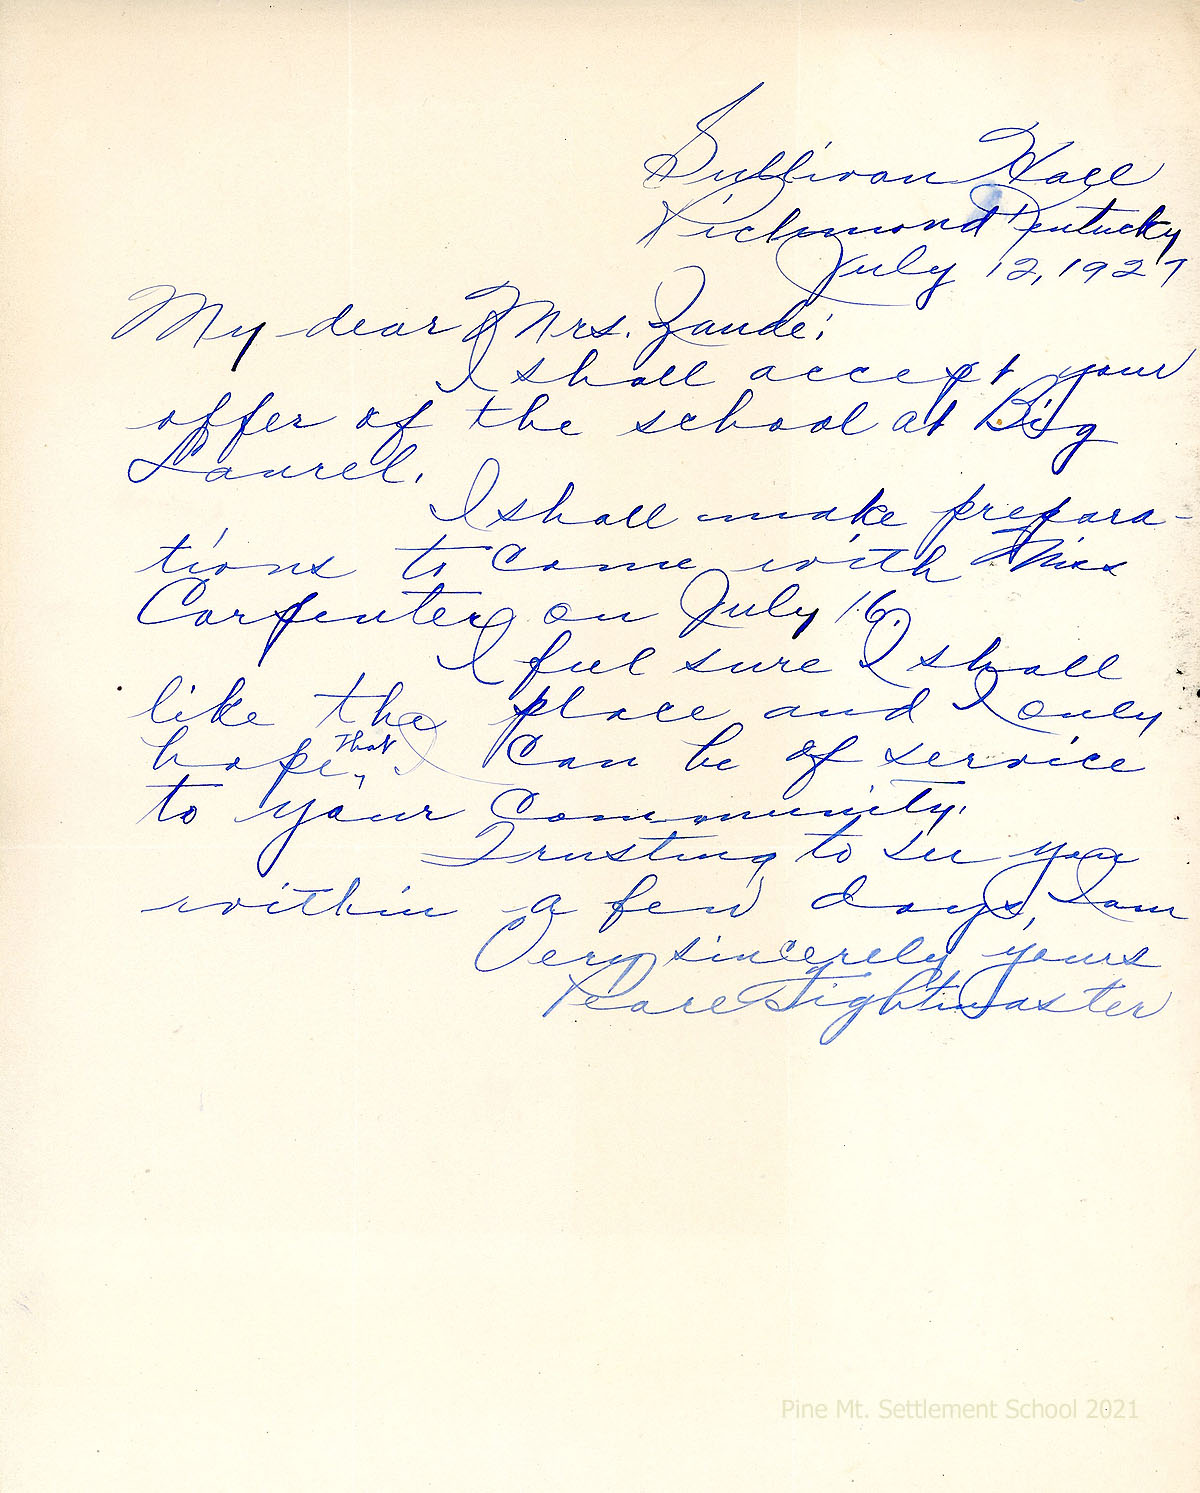 Sullivan Hall
Richmond Kentucky
July 12, 1927
My dear Mrs. Zande:
I shall accept your
offer of the school at Big
Laurel.
I shall make prepara-
tions to come with Miss
Carpenter on July 16.
I feel sure I shall
like the place and I only
hope, that I can be of service
to your community.
Trusting to see you
within a few days, I am
Very sincerely yours
Pearl Tightmaster
Pine Mt. Settlement School 2021